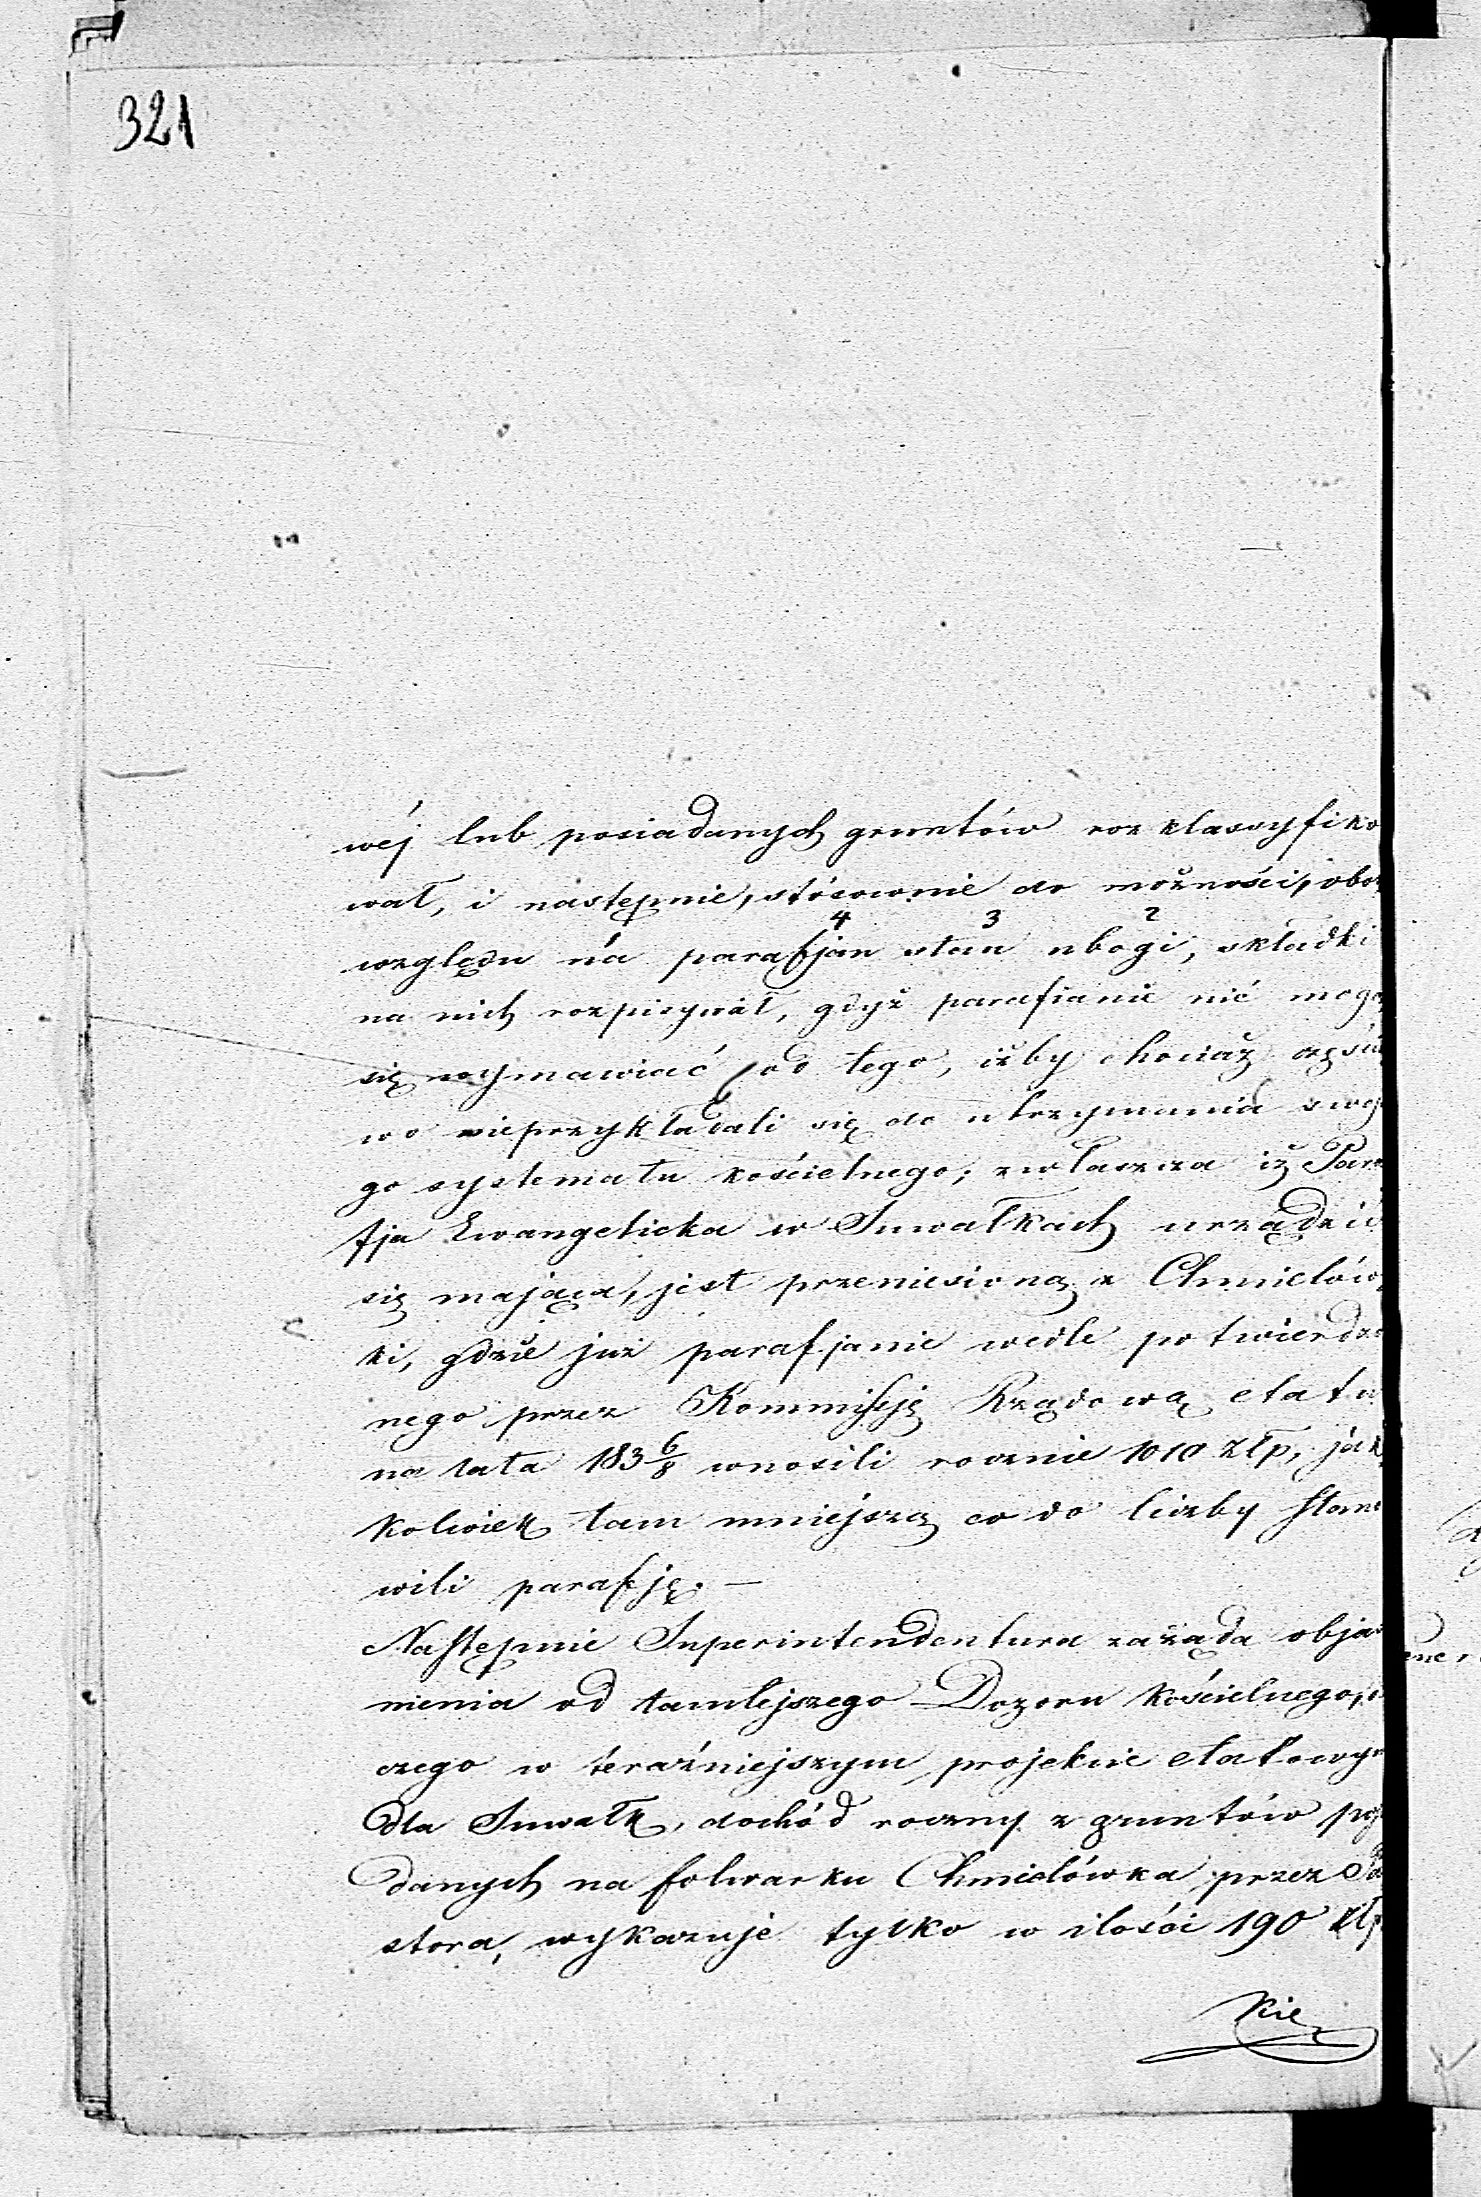 321
wéj lub posiadanych gruntów rozklassyfiko
wał, i następnie, stósownie do możności, obok
4 3 2
względu na parafjan stan ubogi, składki
na nich rozpisywał, gdyż parafianie nie mogą
się wymawiać od tego, iżby chociaż częścio
wo nieprzykładali się do utrzymania swoje
go systematu kościelnego; zwłaszcza iż Para
fja Ewangelicka w Suwałkach urządzić
się mająca, jest przeniesioną z Chmielów
ki, gdzie już parafjanie wedle potwierdzo
nego przez Kommissję Rządową etatu
na lata 183 6/8 wnosili rocznie 1010 złp, jak
kolwiek tam mniejszą co do liczby stano
wili parafję. —
Następnie Superintendentura zażąda objaś
nienia od tamtejszego Dozoru Kościelnego,
czego w teraźniejszym projekcie etatowym
dla Suwałk, dochód roczny z gruntów po
danych na folwarku Chmielówka przez Pa
stora, wykazuje tylko w ilości 190 złp
Kie